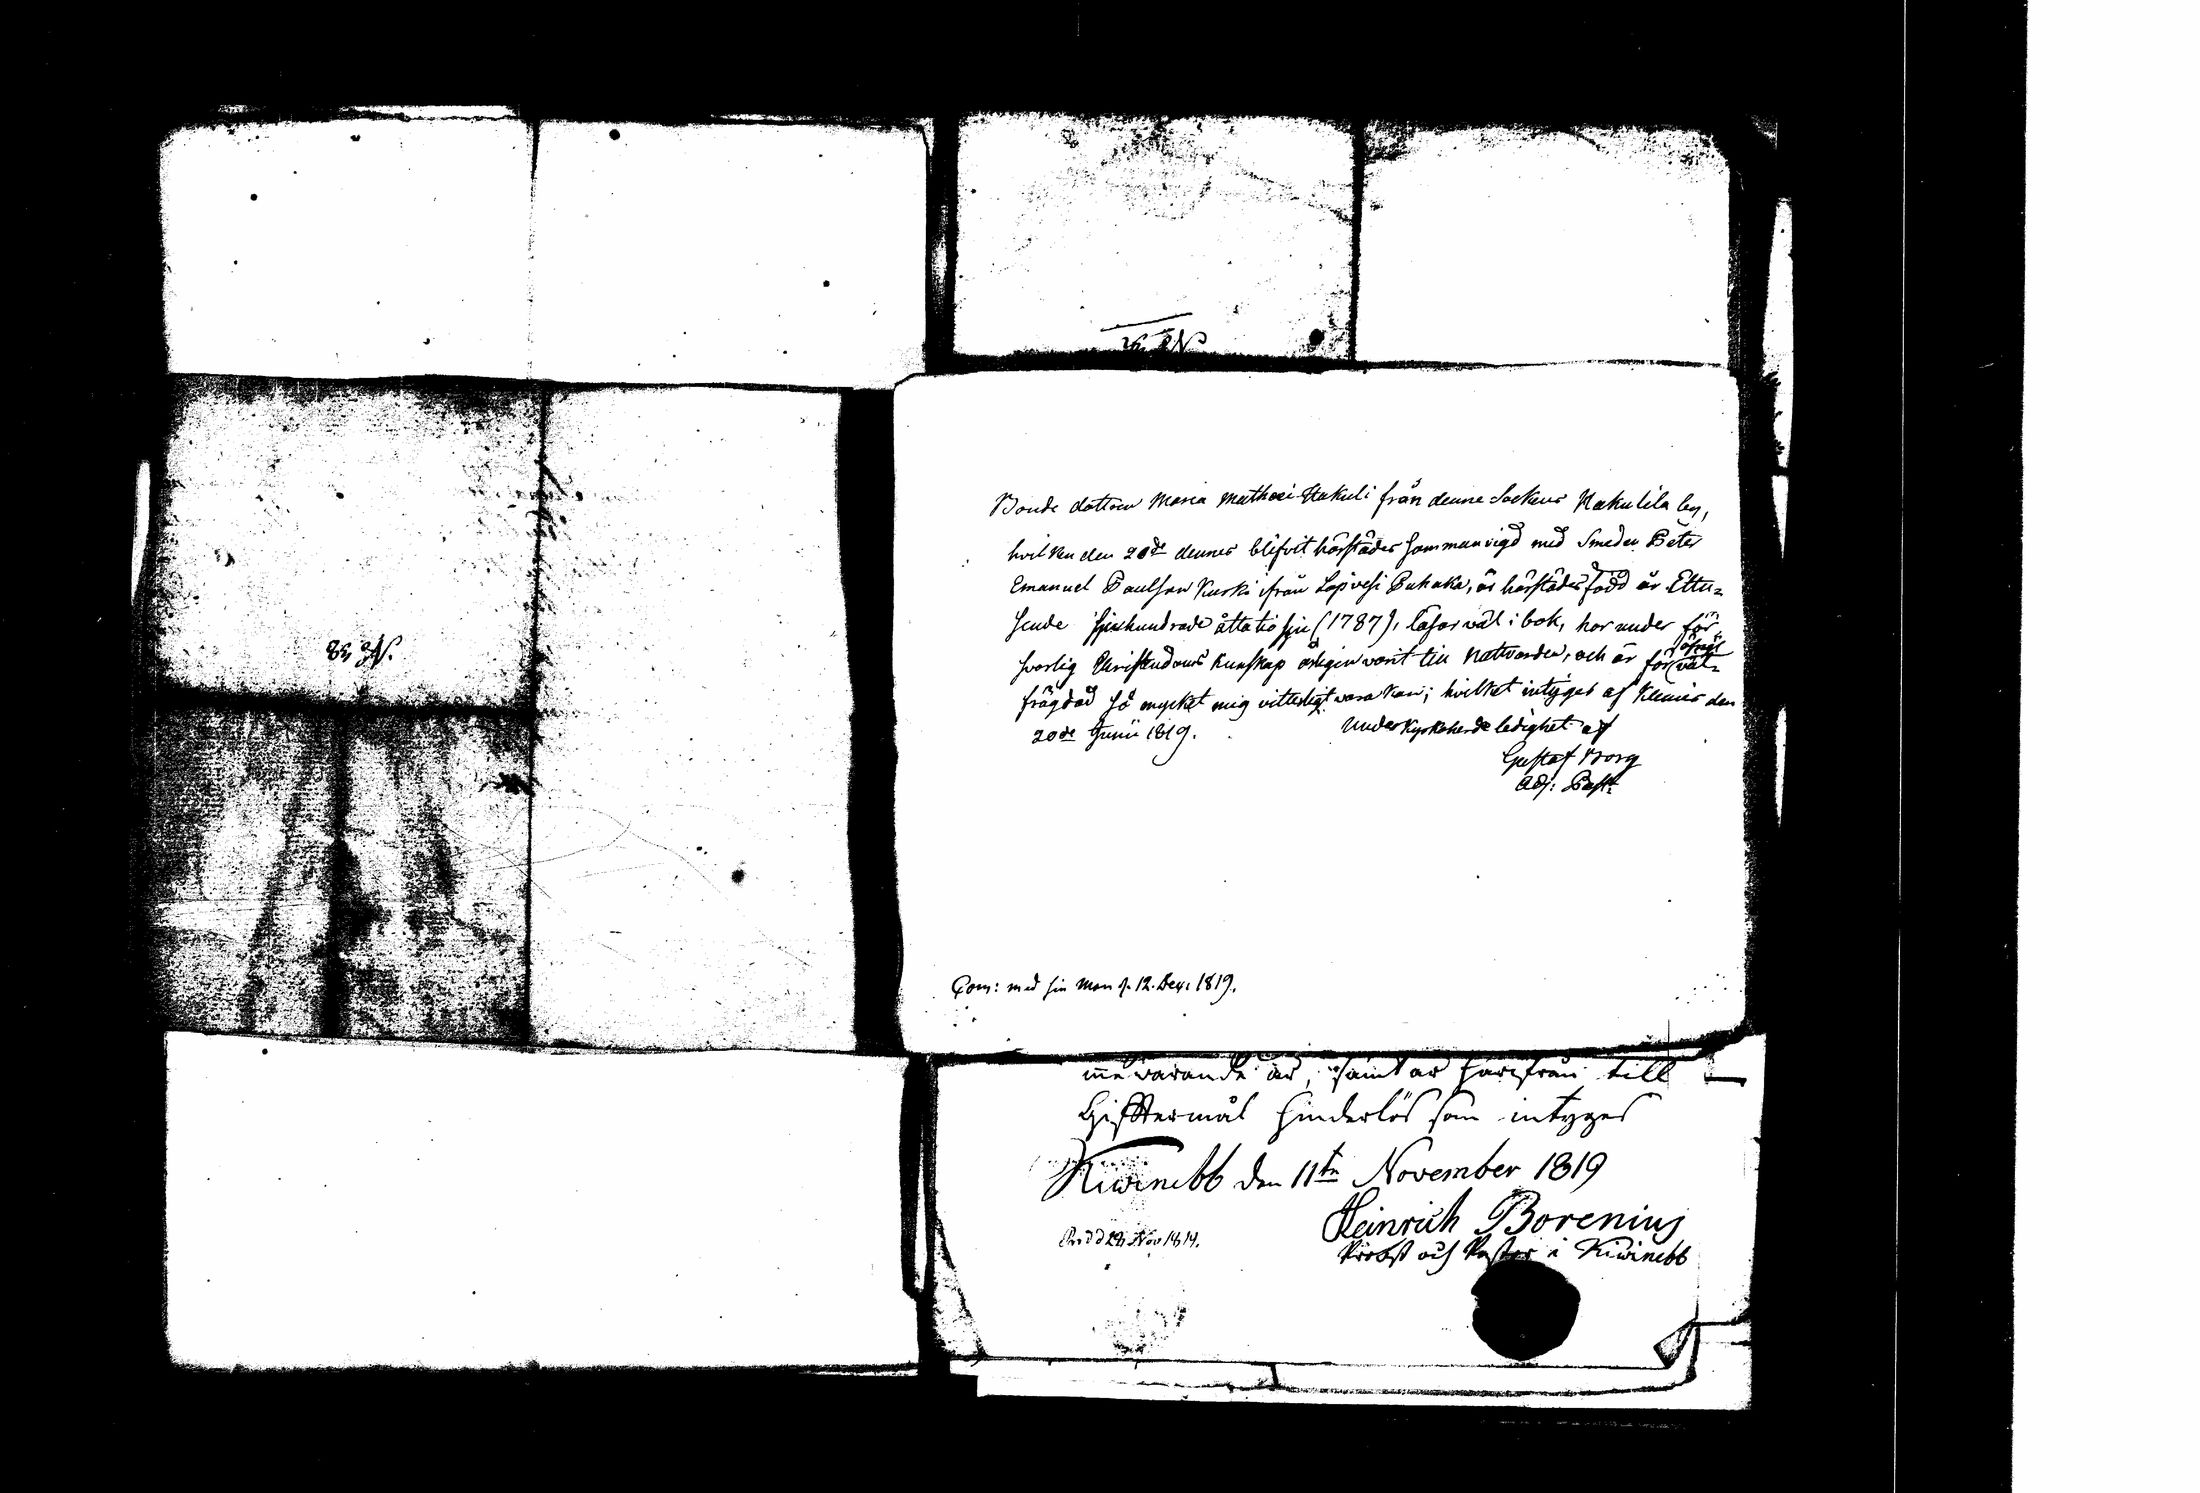 No 38.
Bonde dottren Maria Mathei Hakuli från denne Sockens Hakulila by,
hvilken den 20de dennes blifvit härstädes sammanvigd med Smeden Peter
Emanuel Paulson Kurki ifrån Lapvesi Puhaka, är härstädes född år Ettu=
sende Sjuhundrade åttatio sju (1787), läser väl i bok, har under för=
svarlig Christendoms kunskap årligen varit till Nattvarden, och är för öfrigt väl=
frägdad så mycket mig vitterligt vara kan; hvilket intygas af Klemis den
20de Junii 1819. Under Kyrkoherde ledighet af
Gustaf Borg
Adj: Past:
Com: med sin man d. 12. Dec: 1819.
me varande år, samt är härifrån till
Gifftermål hinderlös som intyges
Kiwinebb den 11te November 1819
Heinrich Borenius
Probst och Pastor i Kiwinebb
Nov 1819.